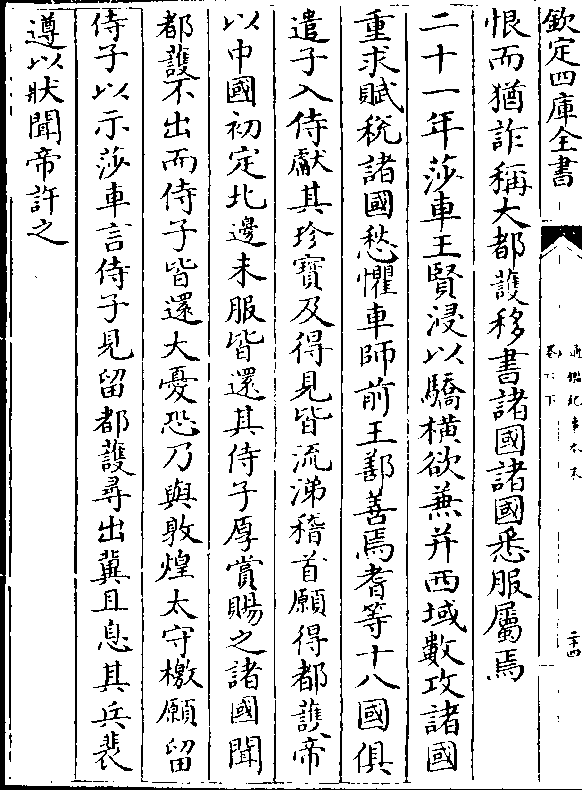 欽定四庫全書
通鑑紀事本末
卷六下
二十四
恨而猶詐稱大都護移書諸國諸國悉服屬焉
二十一年莎車王賢浸以驕橫欲兼并西域數攻諸國
重求賦税諸國愁懼車師前王鄯善焉耆等十八國俱
遣子入侍獻其珍寶及得見皆流涕稽首願得都護帝
以中國初定北邊未服皆還其侍子厚賞賜之諸國聞
都護不出而侍子皆還大憂恐乃與敦煌太守檄願留
侍子以示莎車言侍子見留都護尋出冀且息其兵裴
遵以狀聞帝許之